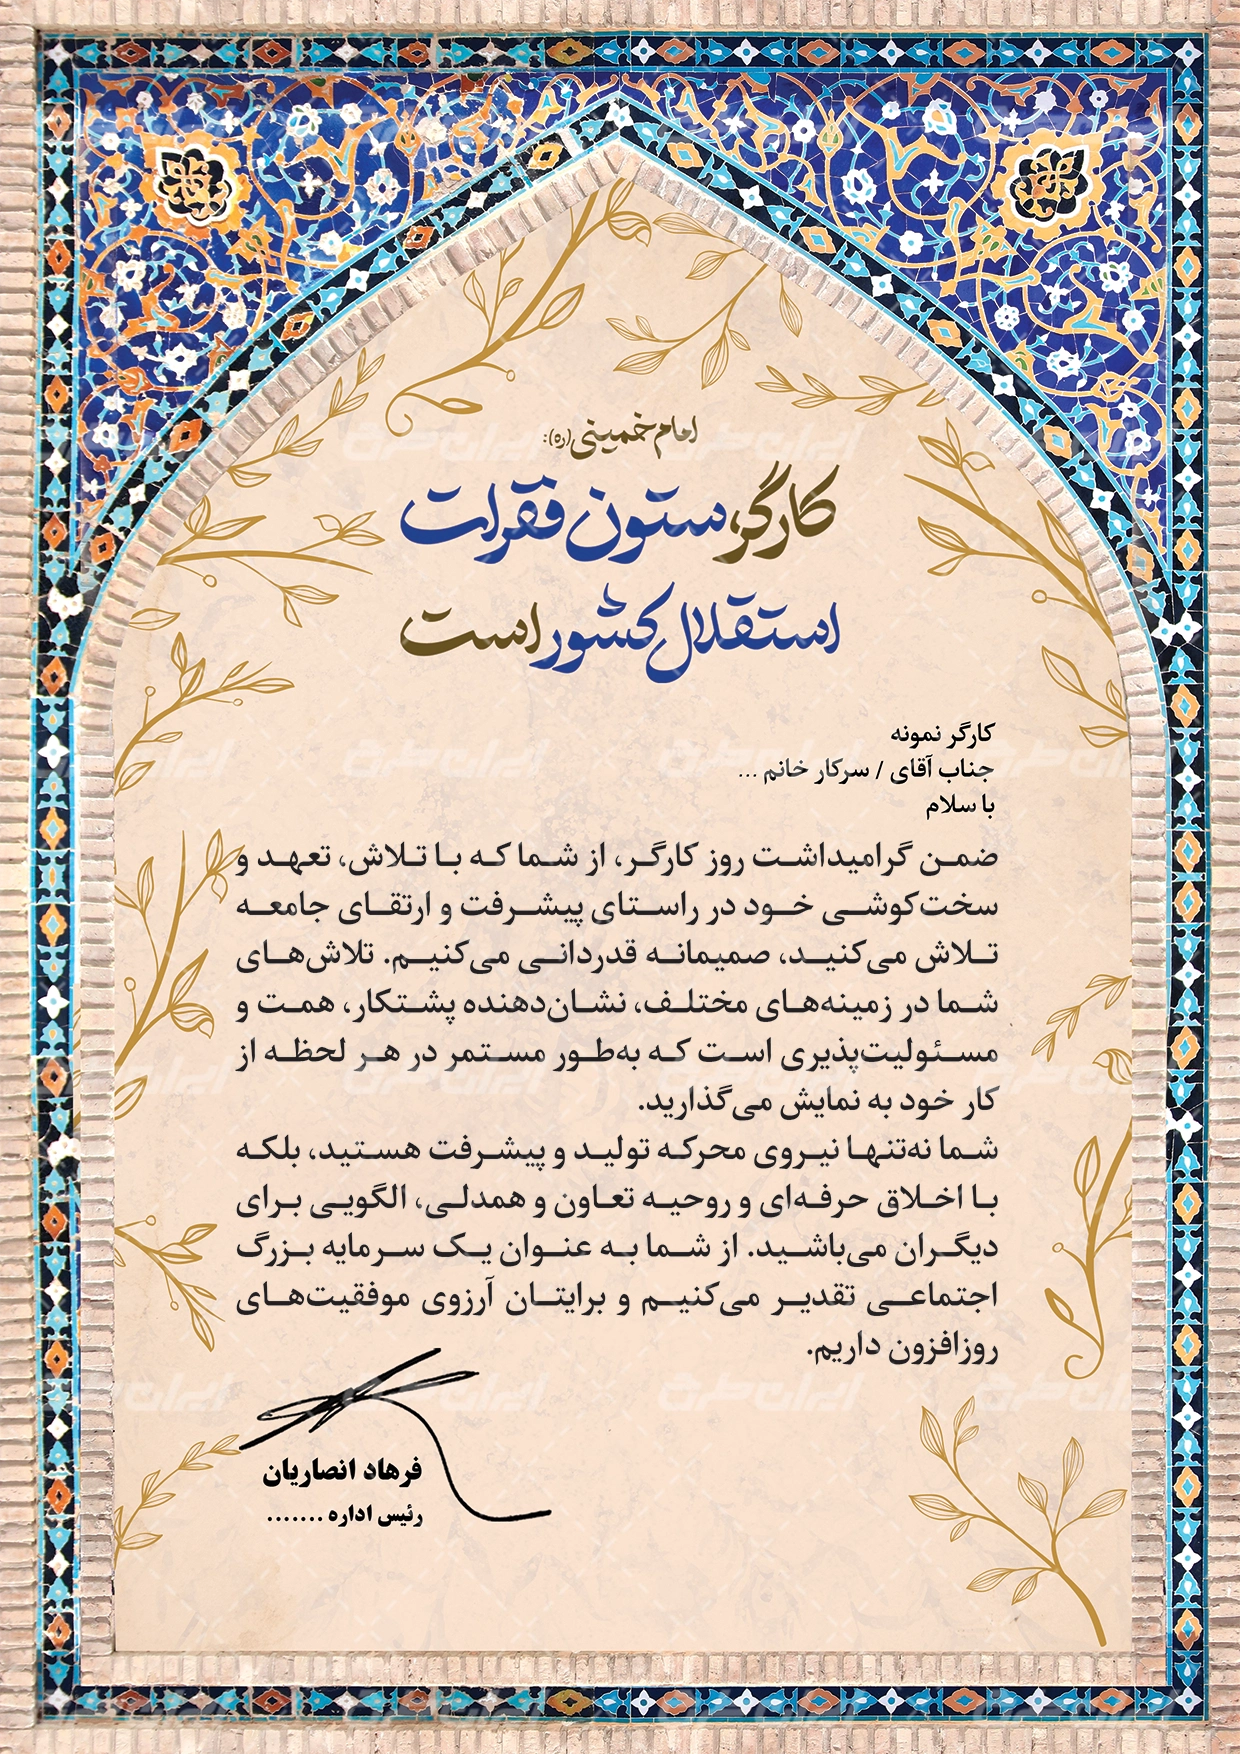 امام خمینی(ره):
کارگر، ستون فقرات
استقلال کشور است
کارگر نمونه
جناب آقای / سرکار خانم ...
با سلام
ضمن گرامیداشت روز کارگر، از شما که با تلاش، تعهد و
سخت‌کوشی خود در راستای پیشرفت و ارتقای جامعه
تلاش می‌کنید، صمیمانه قدردانی می‌کنیم. تلاش‌های
شما در زمینه‌های مختلف، نشان‌دهنده پشتکار، همت و
مسئولیت‌پذیری است که به‌طور مستمر در هر لحظه از
کار خود به نمایش می‌گذارید.
شما نه‌تنها نیروی محرکه تولید و پیشرفت هستید، بلکه
با اخلاق حرفه‌ای و روحیه تعاون و همدلی، الگویی برای
دیگران می‌باشید. از شما به عنوان یک سرمایه بزرگ
اجتماعی تقدیر می‌کنیم و برایتان آرزوی موفقیت‌های
روزافزون داریم.
فرهاد انصاریان
رئیس اداره .......
ایران طرح